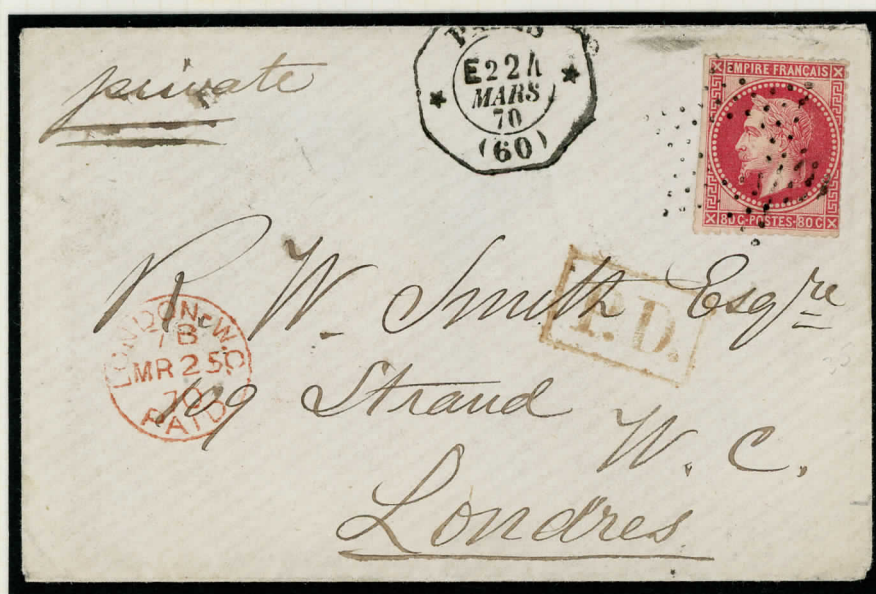 private
PARIS
E 22 4
MARS
70
(60)
EMPIRE FRANCAIS
80 C-POSTES-80 C
R W. Smith Esqre
P.D.
LONDON-W.C
7 B
MR 25
70
PAID
109 Strand
W. C.
Londres